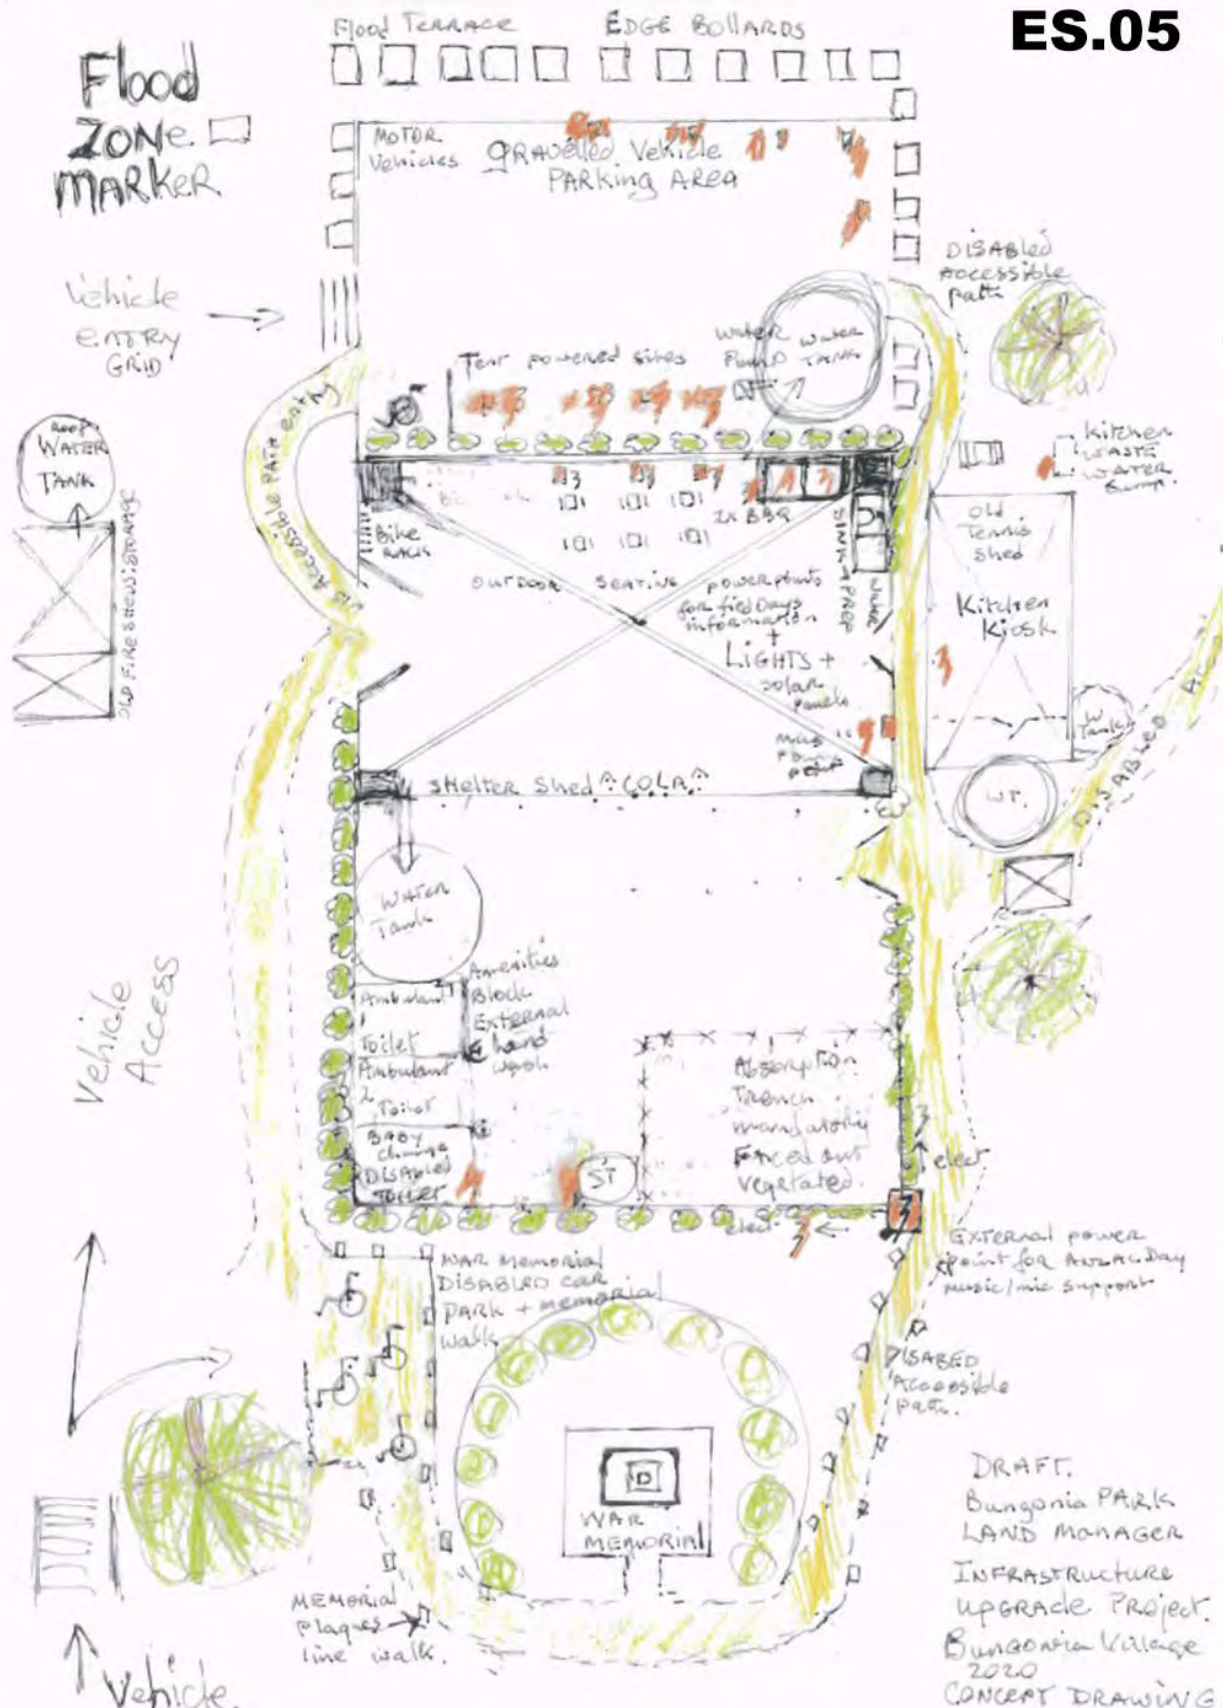 ES.05
Flood TERRACE EDGE BOLLARDS
Flood
ZONE
MARKER
MOTOR
Vehicles
GRAVElled Vehicle
PARKING AREA
Vehicle
ENTRY
GRID
DISABled
Accessible
path
Tent powered sites
Water
Pump
Water
TANK
Roof
WATER
TANK
OLD FIRE SHEDS: STORAGE
Accessible PATH entry
Kitchen
WASTE
WATER
Sump.
Bike
RACKS
2x BBQ
SINK + PREP
Water
Old
Tennis
Shed
Kitchen
Kiosk
OUTDOOR SEATING
powerpoints
for field Days
information
+
LIGHTS +
solar
panels
Power
point
W
Tank
W.T.
DISABLED
SHELTER Shed "COLA"
WATER
Tank
Vehicle
Access
Amenities
Block
EXTERNAL
hand
wash
Ambulant
1
Toilet
Ambulant
2
Toilet
BABY
change
DISABled
TOILET
ST
Absorption
Trench
mandatory
Fenced out
vegetated.
elect.
elect.
EXTERNAL power
point for ANZAC Day
music/mic support
WAR MEMORIAL
DISABLED CAR
PARK + MEMORIAL
walk
DISABED
Accessible
path.
WAR
MEMORIAL
MEMORIAL
Plaques
line walk.
Vehicle
DRAFT.
Bungonia PARK
LAND MANAGER
INFRASTRUCTURE
UPGRADE PROJECT.
Bungonia Village
2020
CONCEPT DRAWING